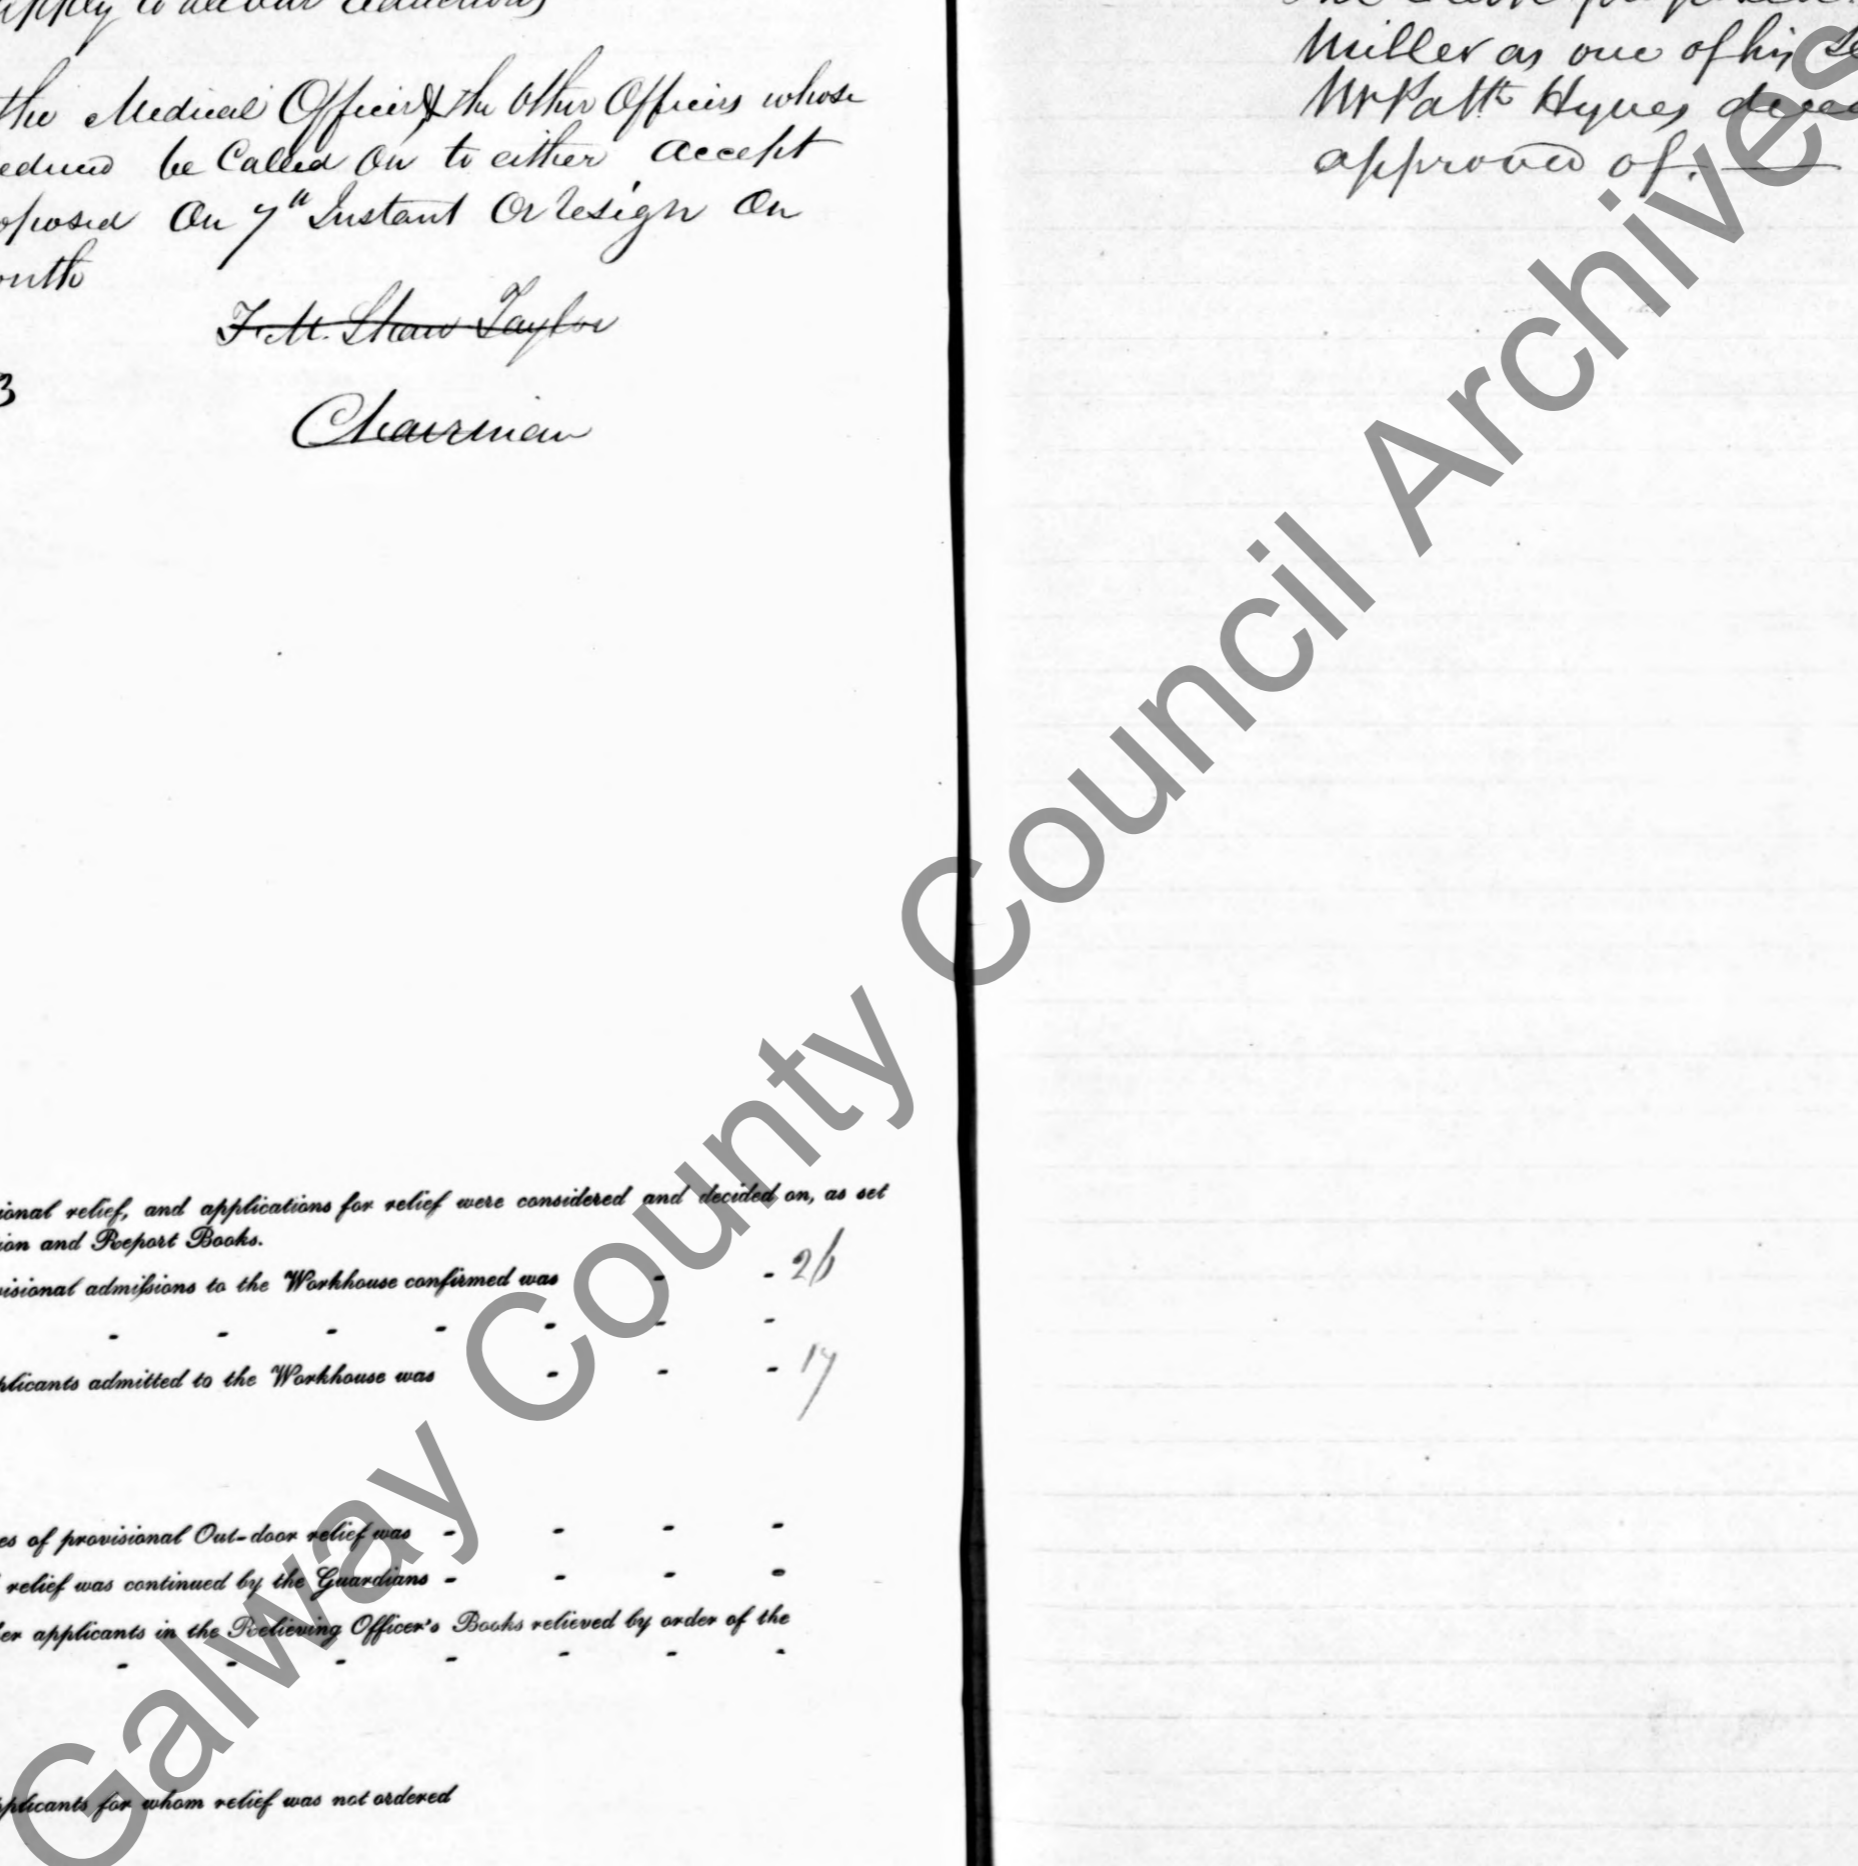 apply to all our reductions
the Medical Officer & the Other Officers whose
be Called On to either accept
On 7th Instant Or resign On
F. M. Shaw Taylor
3
Chairman
ional relief, and applications for relief were considered and decided on, as set
ion and Report Books.
visional admissions to the Workhouse confirmed was - - 26
- - - - - - -
plicants admitted to the Workhouse was - - - 17
es of provisional Out-door relief was - - - -
relief was continued by the Guardians - - - -
er applicants in the Relieving Officer's Books relieved by order of the
- - - - - - -
pplicants for whom relief was not ordered
Miller as one of his
Mr Patk Hynes
approved of.
Galway County Council Archives